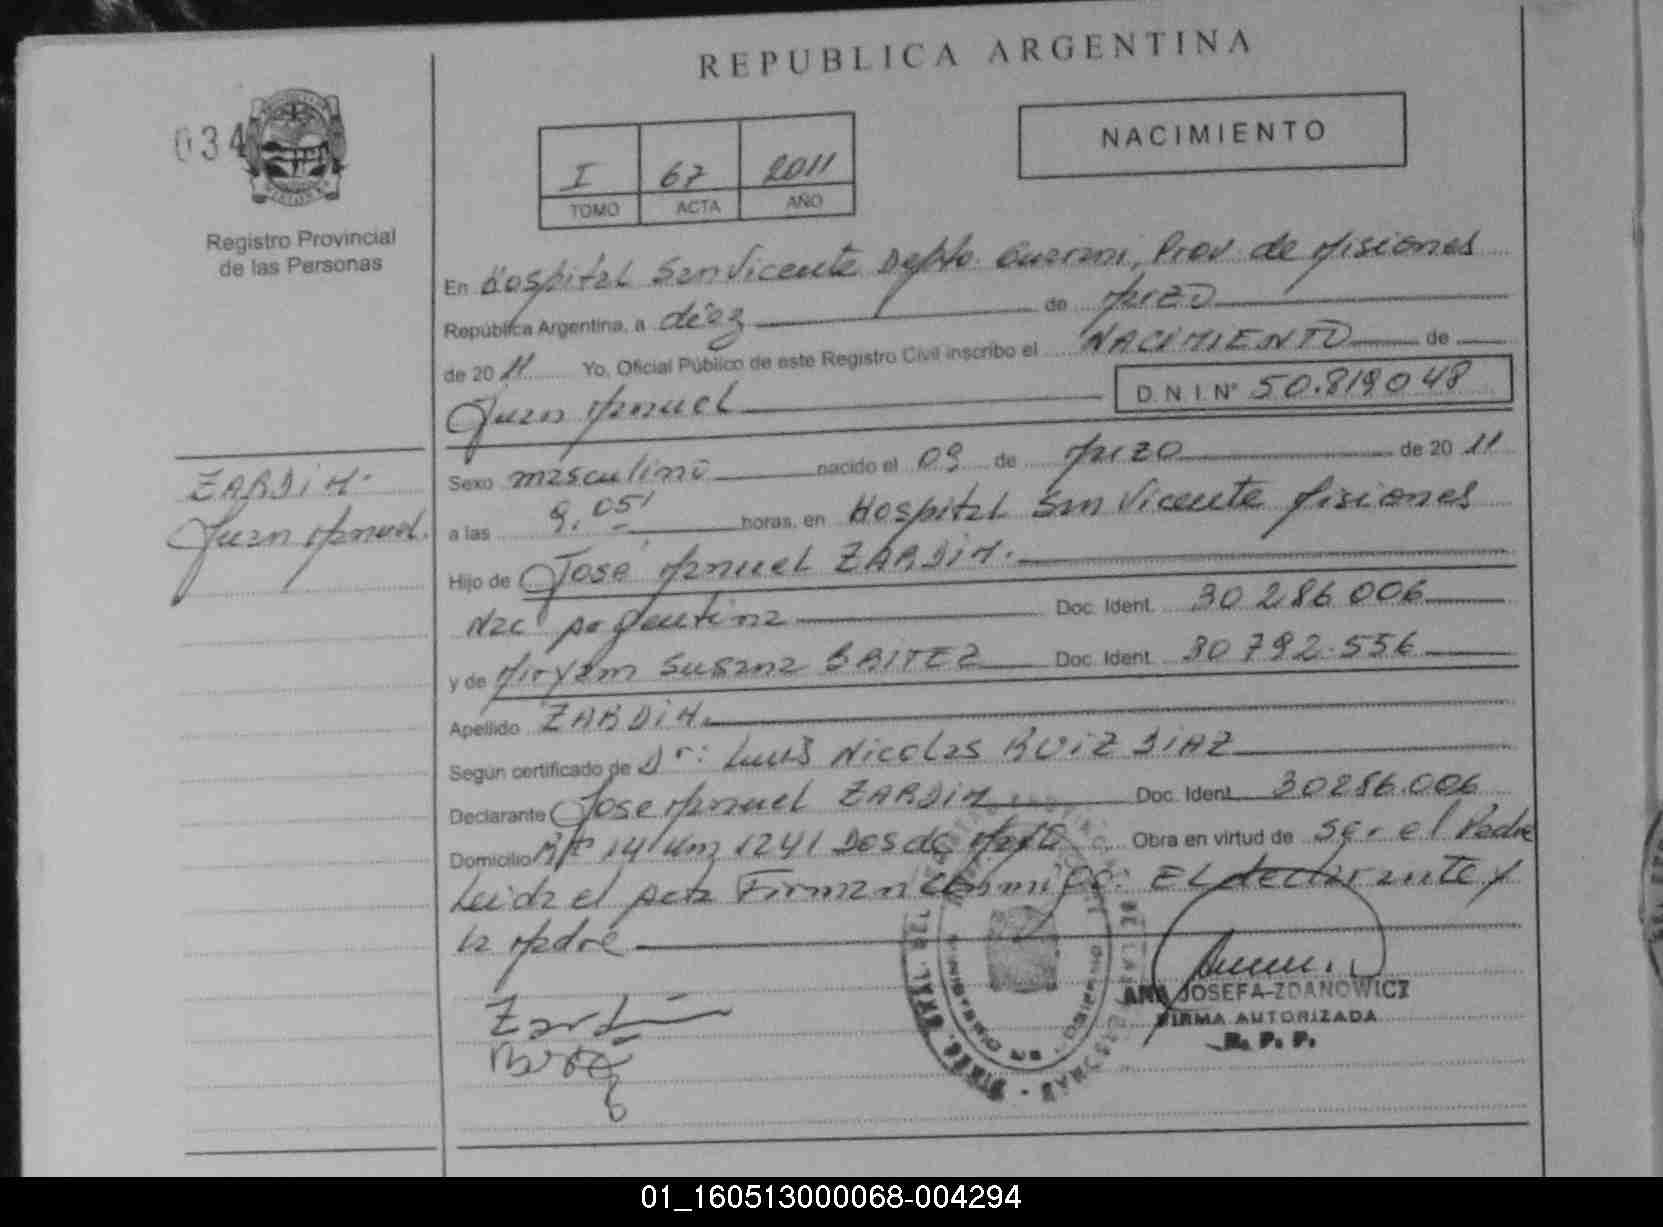 REPUBLICA ARGENTINA
034
NACIMIENTO
I 67 2011
TOMO ACTA AÑO
Registro Provincial
de las Personas
En Hospital San Vicente Depto Guarani, Prov. de Misiones
República Argentina, a diez de Marzo
de 2011 Yo, Oficial Público de este Registro Civil inscribo el NACIMIENTO de
Juan Manuel D.N.I. N° 50.819048
ZARDIN.
Juan Manuel.
Sexo masculino nacido el 09 de Marzo de 2011
a las 9.05' horas, en Hospital San Vicente Misiones
Hijo de José Manuel ZARDIN.
Nac Argentina Doc. Ident. 30286006
y de Miryam Susana BRITEZ Doc. Ident. 30792.556
Apellido ZARDIN.
Según certificado de Dr: Luis Nicolas RUIZ DIAZ
Declarante Jose Manuel ZARDIN Doc. Ident. 30286.006
Domicilio 14 Km 1241 Dos de Mayo Obra en virtud de ser el Padre
Leida el Acta Firman Conmigo: El declarante y
la Madre
Zardin
ANA JOSEFA ZDANOWICZ
FIRMA AUTORIZADA
R. P. P.
01_160513000068-004294